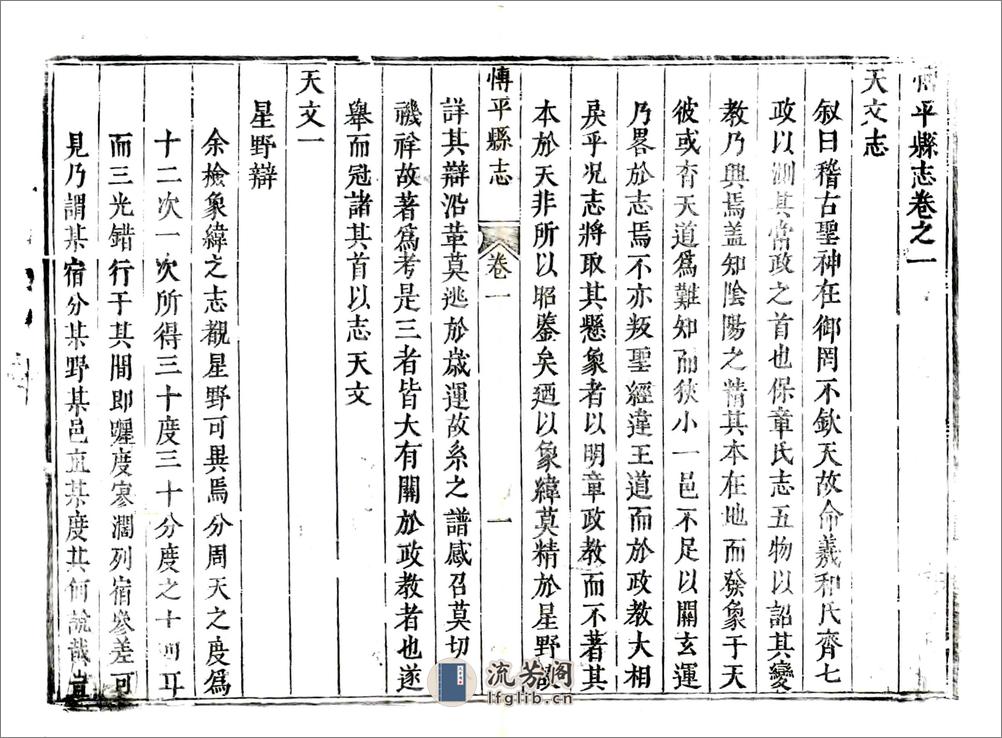 博平縣志卷之一
天文志
叙曰稽古聖神在御罔不欽天故命羲和氏齊七
政以測其當政之首也保章氏志五物以詔其變
教乃興焉盖知陰陽之精其本在地而發象于天
彼或育天道爲難知而狹小一邑不足以關玄運
乃畧於志焉不亦叛聖經違王道而於政教大相
戾乎况志將取其懸象者以明章政教而不著其
本於天非所以昭鑒矣迺以象緯莫精於星野故
博平縣志
卷一
一
詳其辯沿革莫逃於歳運故系之譜感召莫切
禨祥故著爲考是三者皆大有關於政教者也遂
舉而冠諸其首以志天文
天文一
星野辯
余檢象緯之志觀星野可異焉分周天之度爲
十二次一次所得三十度三十分度之十四耳
而三光錯行于其間即躔度寥濶列宿參差可
見乃謂某宿分某野某邑直某度其何說哉豈
流芳阁
lfglib.cn